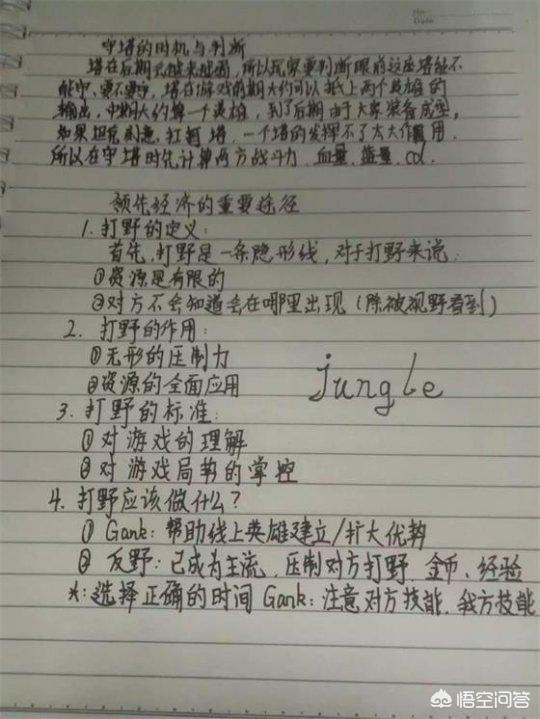 No.
Date
守塔的时机与判断
塔在后期式越来越弱,所以玩家要判断眼前这座塔能不
能守、要不要守,塔在游戏前期大约可以抵上两个英雄的
输出,中期大约算一个英雄,到了后期由于大家装备成型,
如果坦克刻意扛着塔,一个塔的发挥不了太大作用.
所以在守塔时先计算两方战斗力、血量、蓝量、cd.
领先经济的重要途径
1. 打野的定义:
首先,打野是一条隐形线,对于打野来说:
①资源是有限的
②对方不会知道会在哪里出现(除被视野看到)
2. 打野的作用:
①无形的压制力
jungle
②资源的全面应用
3. 打野的标准:
①对游戏的理解
②对游戏局势的掌控
4. 打野应该做什么?
① Gank: 帮助线上英雄建立/扩大优势
② 反野: 已成为主流、压制对方打野、金币、经验
*: 选择正确的时间 Gank: 注意对方技能、我方技能
悟空问答